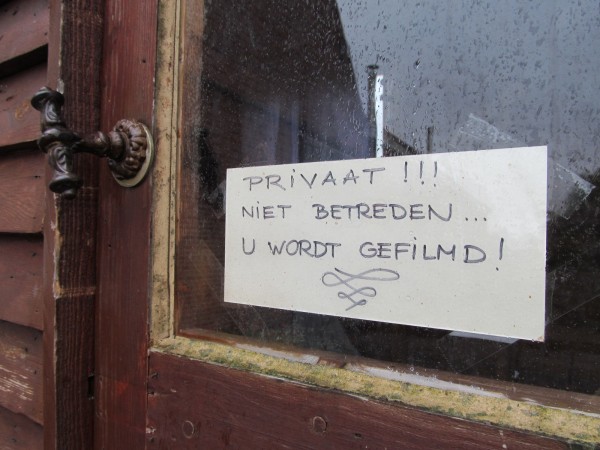 PRIVAAT !!!
NIET BETREDEN...
U WORDT GEFILMD!